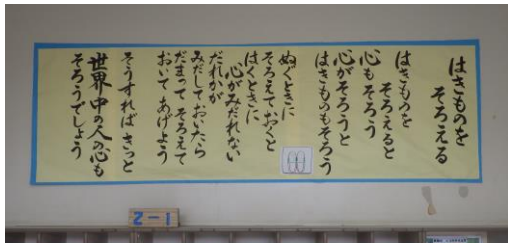 はきものを
そろえる
はきものを
そろえると
心もそろう
心がそろうと
はきものもそろう
ぬぐときに
そろえておくと
はくときに
心がみだれない
だれかが
みだしておいたら
だまって そろえて
おいて あげよう
そうすれば きっと
世界中の人の心も
そろうでしょう
2-1